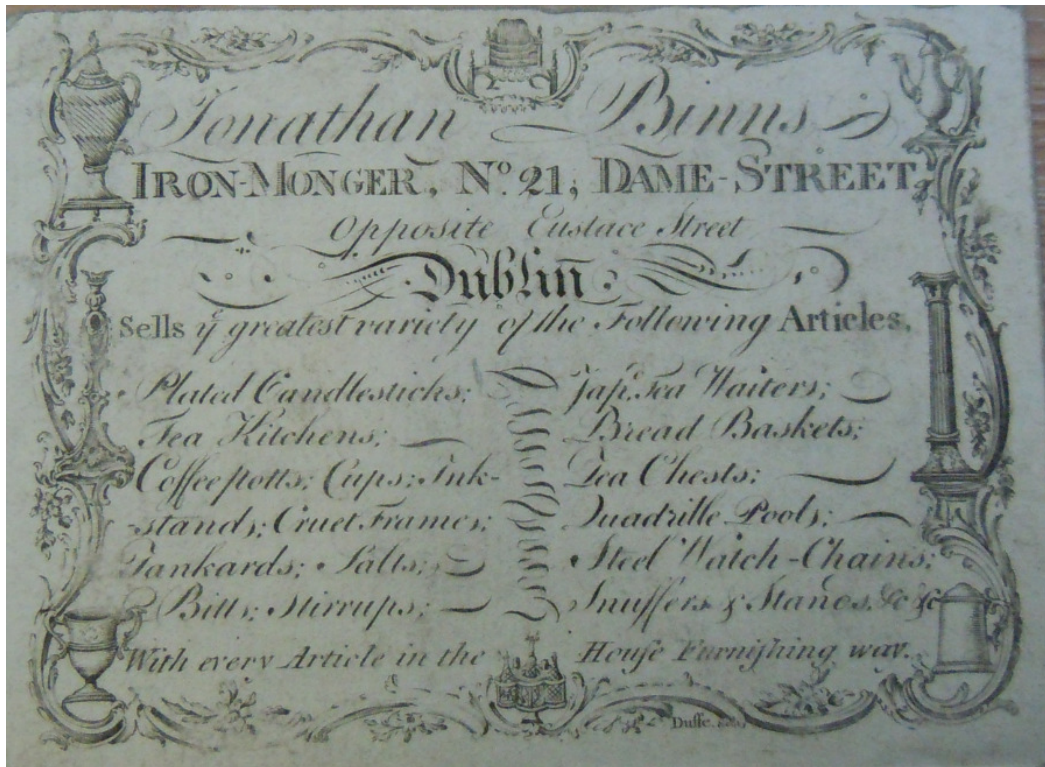 Jonathan Binns
IRON-MONGER, No. 21, DAME-STREET,
Opposite Eustace Street
Dublin
Sells ye greatest variety of the Following Articles.
Plated Candlesticks;
Tea Kitchens;
Coffee potts; Cups; Ink-
stands; Cruet Frames;
Tankards; Salts;
Bitts; Stirrups;
Jap'd Tea Waiters;
Bread Baskets;
Tea Chests;
Quadrille Pools;
Steel Watch-Chains;
Snuffers & Stands, &c &c
With every Article in the House Furnishing way.
2 C